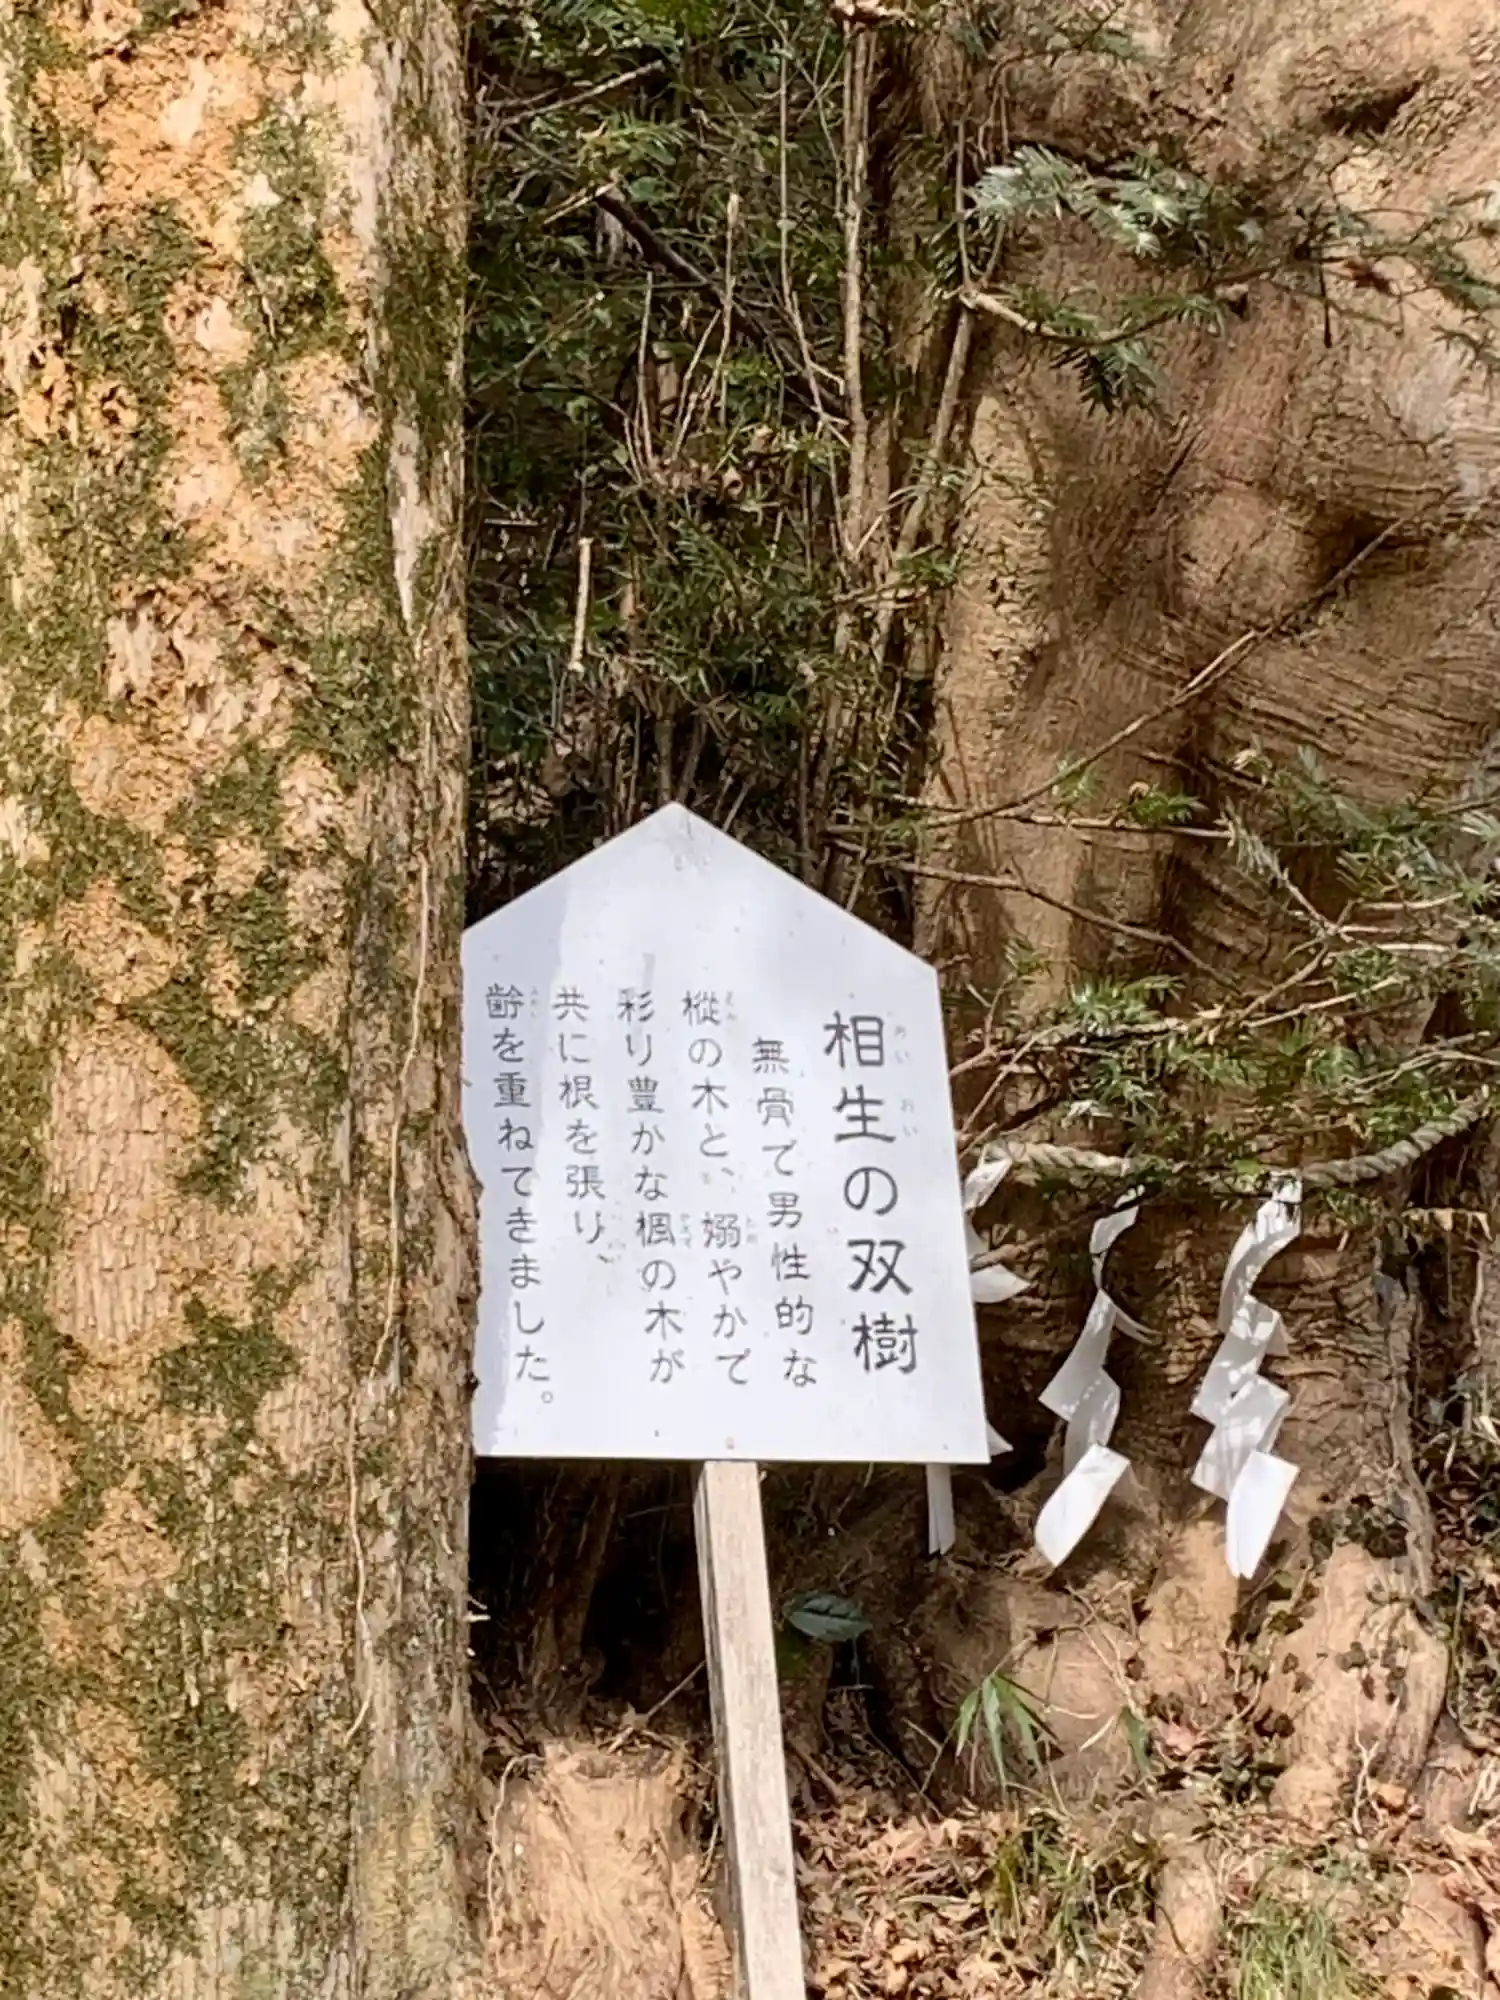 相生の双樹
無骨で男性的な
樅の木と、嫋やかで
彩り豊かな楓の木が
共に根を張り、
齢を重ねてきました。